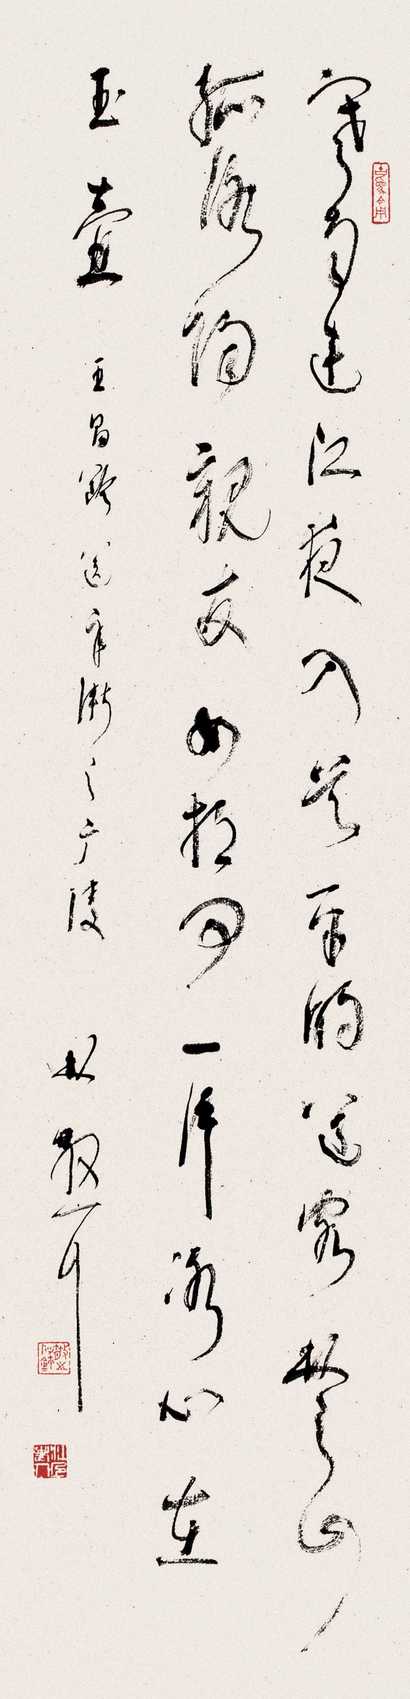 寒雨連江夜入吴平明送客楚山
孤洛陽親友如相问一片冰心在
玉壺 王昌齡送辛漸之广陵 林散耳